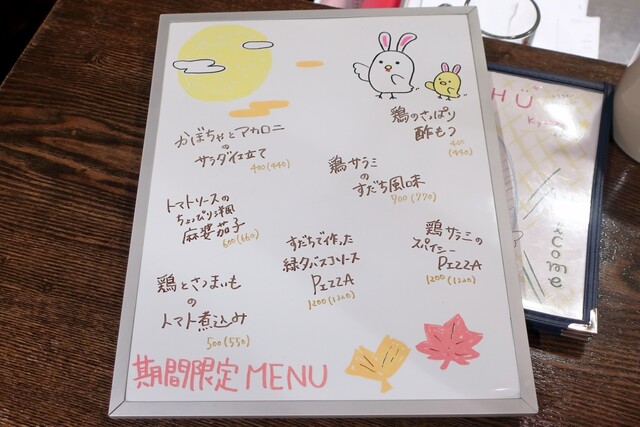 かぼちゃとマカロニ
の
サラダ仕立て
400(440)
鶏のさっぱり
酢もつ
400
(440)
鶏サラミ
の
すだち風味
700(770)
トマトソースの
ちょっぴり洋風
麻婆茄子
600(660)
すだちで作った
緑タバスコソース
PIZZA
1200(1320)
鶏サラミの
スパイシー
PIZZA
1200(1320)
鶏とさつまいも
の
トマト煮込み
500(550)
期間限定 MENU